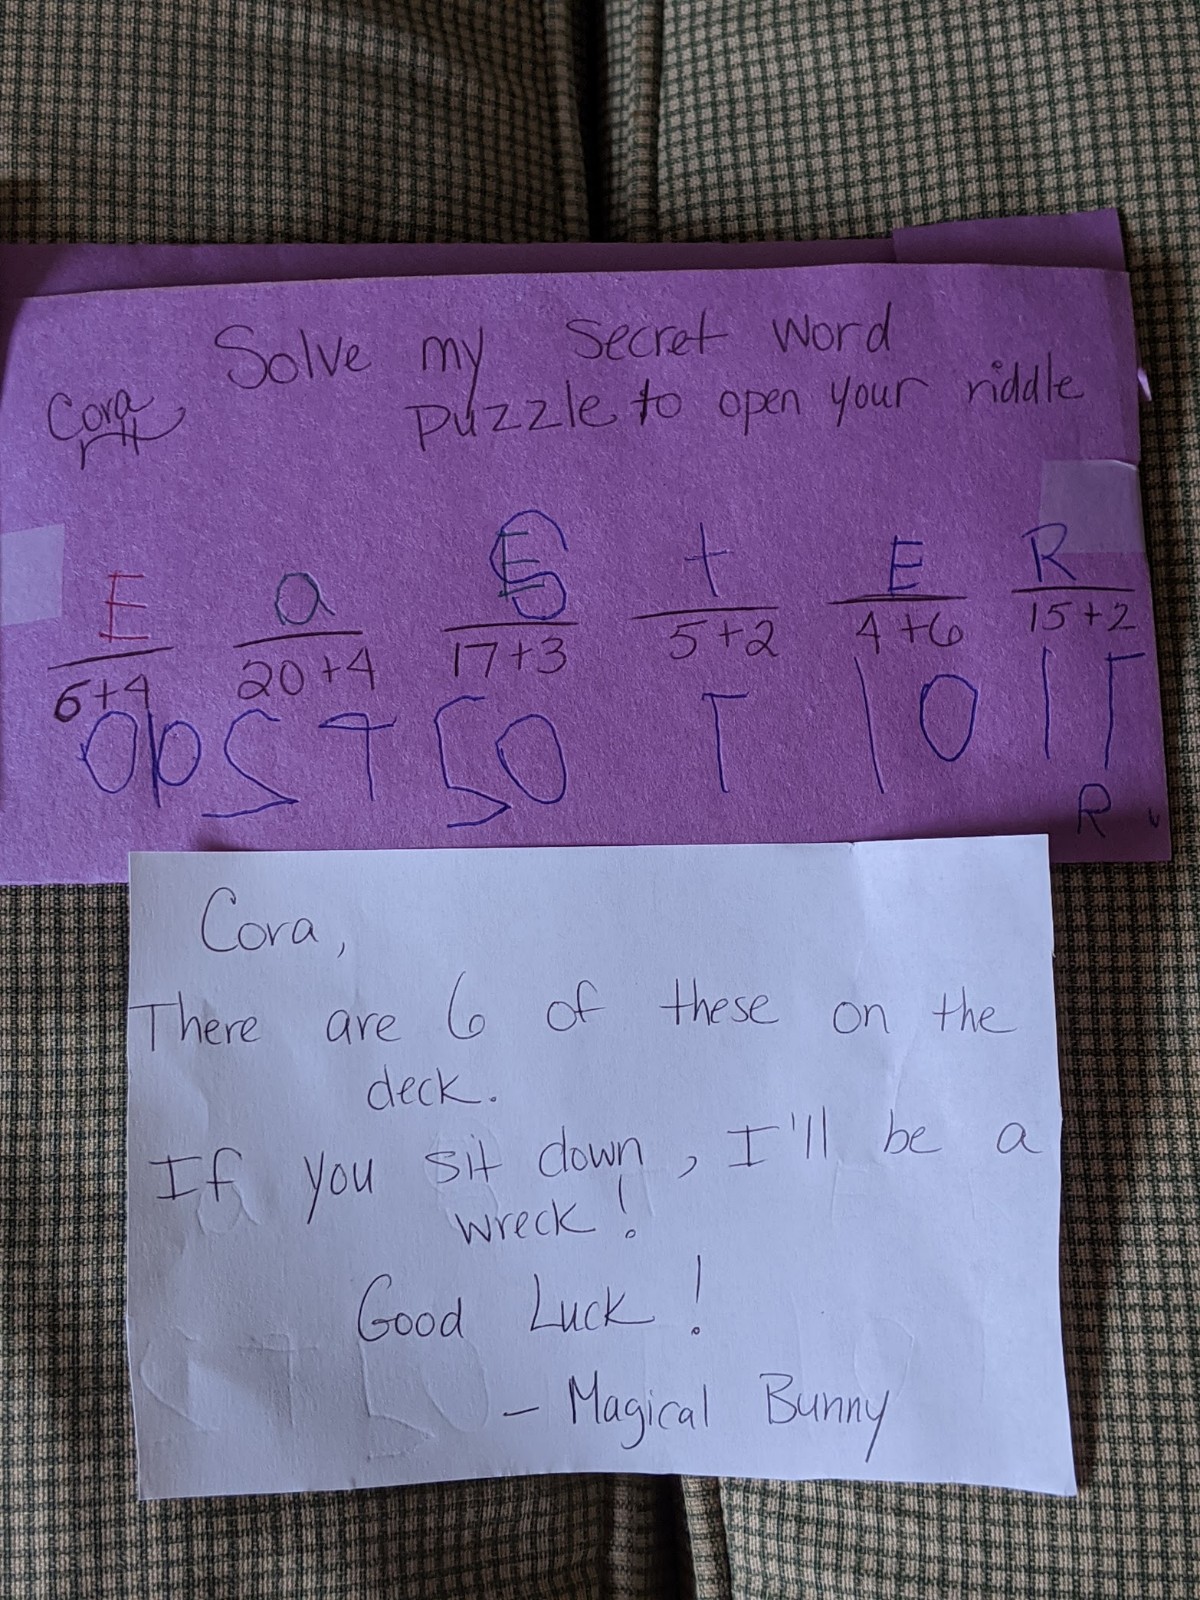 Solve my Secret Word
Cora, puzzle to open your riddle
E a S t E R
6+4 20+4 17+3 5+2 4+6 15+2
10 24 20 7 10 17
R
Cora,
There are 6 of these on the
deck.
If you sit down, I'll be a
wreck!
Good Luck!
- Magical Bunny